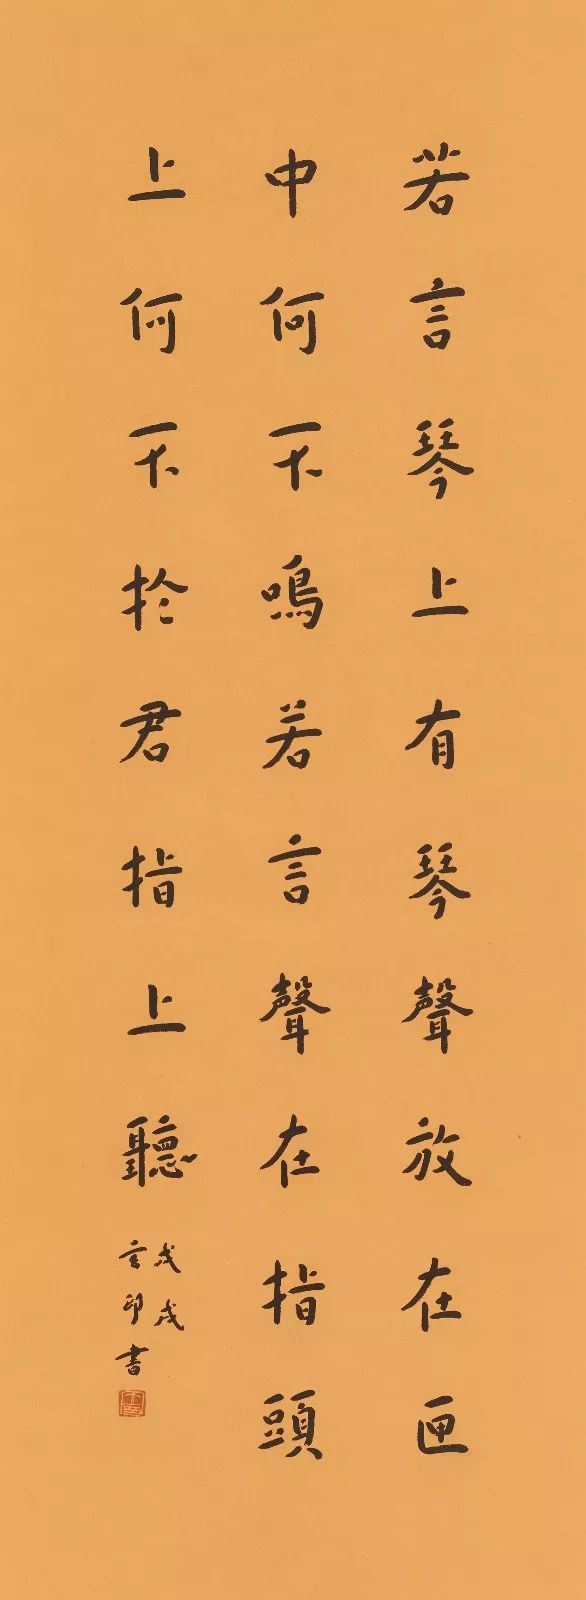 若言琴上有琴聲放在匣
中何不鳴若言聲在指頭
上何不於君指上聽
戊戌
言印書